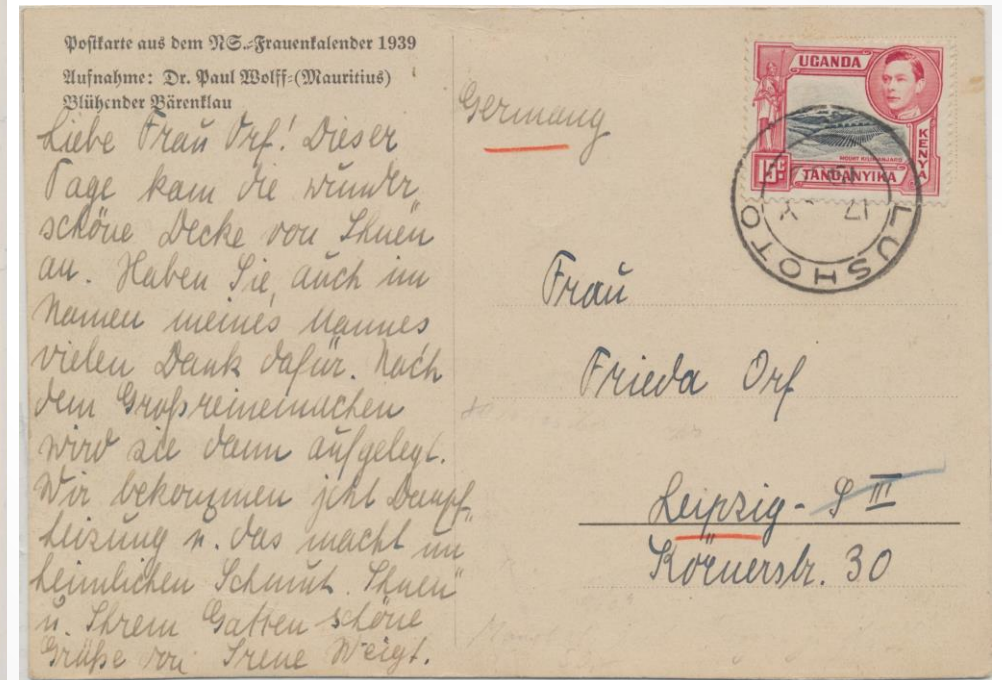 Postkarte aus dem NS.-Frauenkalender 1939
Aufnahme: Dr. Paul Wolff-(Mauritius)
Blühender Bärenklau
Liebe Frau Orf! Dieser
Tage kam die wunder„
schöne Decke von Ihnen
an. Haben Sie, auch im
Namen meines Mannes
vielen Dank dafür. Nach
dem Großreinemachen
wird sie dann aufgelegt.
Wir bekommen jetzt Dampf„
heizung u. das macht un„
heimlichen Schmutz. Ihnen
u. Ihrem Gatten schöne
Grüße von Irene Weigt.
Germany
UGANDA
KENYA
MOUNT KILIMANJARO
15c TANGANYIKA
LUSHOTO
17
Frau
Frieda Orf
Leipzig - S III
Körnerstr. 30